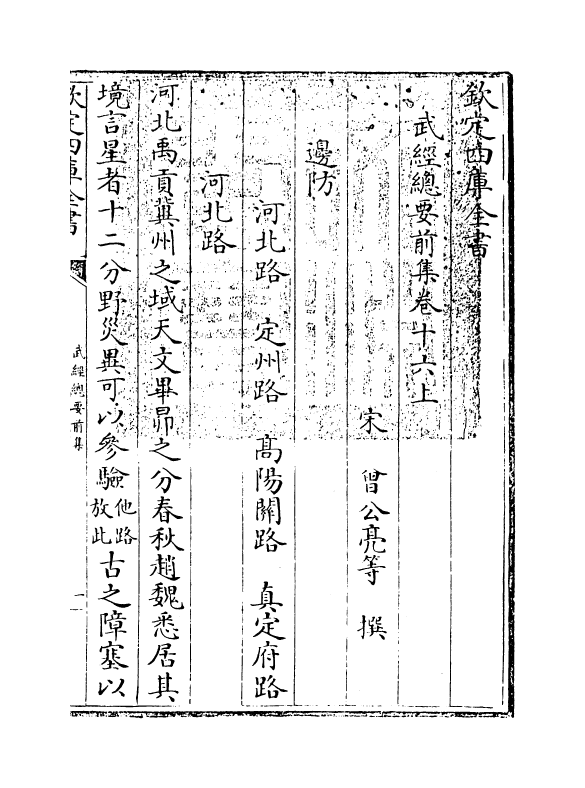 欽定四庫全書
武經總要前集卷十六上
宋 曾公亮等 撰
邊防
河北路 定州路 髙陽關路 真定府路
河北路
河北禹貢冀州之域天文畢昴之分春秋趙魏悉居其
境言星者十二分野災異可以參驗他路放此古之障塞以
欽定四庫全書
武經總要前集
一